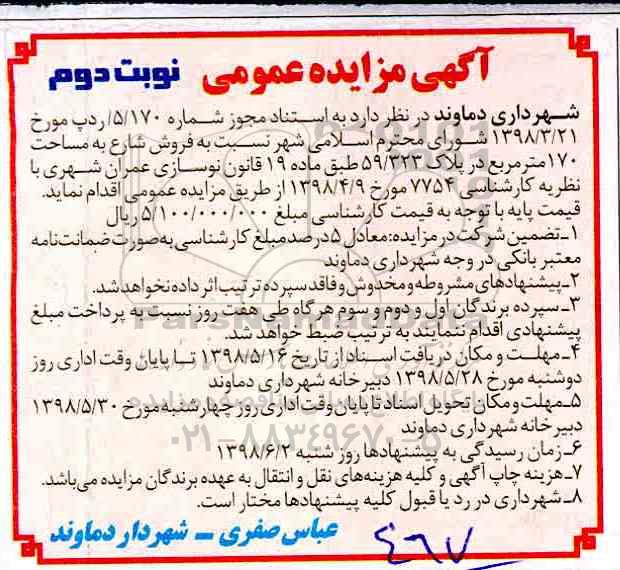 آگهی مزایده عمومی نوبت دوم
شهرداری دماوند در نظر دارد به استناد مجوز شماره ۵/۱۷۰/ردپ مورخ
۱۳۹۸/۳/۲۱ شورای محترم اسلامی شهر نسبت به فروش شارع به مساحت
۱۷۰مترمربع در پلاک ۵۹/۳۲۳ طبق ماده ۱۹ قانون نوسازی عمران شهری با
نظریه کارشناسی ۷۷۵۴ مورخ ۱۳۹۸/۴/۹ از طریق مزایده عمومی اقدام نماید.
قیمت پایه با توجه به قیمت کارشناسی مبلغ ۵/۱۰۰/۰۰۰/۰۰۰ ریال
۱ـ تضمین شرکت در مزایده: معادل ۵درصد مبلغ کارشناسی به‌صورت ضمانت‌نامه
معتبر بانکی در وجه شهرداری دماوند
۲ـ پیشنهادهای مشروطه و مخدوش و فاقد سپرده ترتیب اثر داده نخواهد شد.
۳ـ سپرده برندگان اول و دوم و سوم هرگاه طی هفت روز نسبت به پرداخت مبلغ
پیشنهادی اقدام ننمایند به ترتیب ضبط خواهد شد.
۴ـ مهلت و مکان دریافت اسناد از تاریخ ۱۳۹۸/۵/۱۶ تا پایان وقت اداری روز
دوشنبه مورخ ۱۳۹۸/۵/۲۸ دبیرخانه شهرداری دماوند
۵ـ مهلت و مکان تحویل اسناد تا پایان وقت اداری روز چهارشنبه مورخ ۱۳۹۸/۵/۳۰
دبیرخانه شهرداری دماوند
۶ـ زمان رسیدگی به پیشنهادها روز شنبه ۱۳۹۸/۶/۲
۷ـ هزینه چاپ آگهی و کلیه هزینه‌های نقل و انتقال به عهده برندگان مزایده می‌باشد.
۸ـ شهرداری در رد یا قبول کلیه پیشنهادها مختار است.
عباس صفری ـ شهردار دماوند
۴۶۷
۰۲۱-۸۸۳۴۹۶۷۰-۵